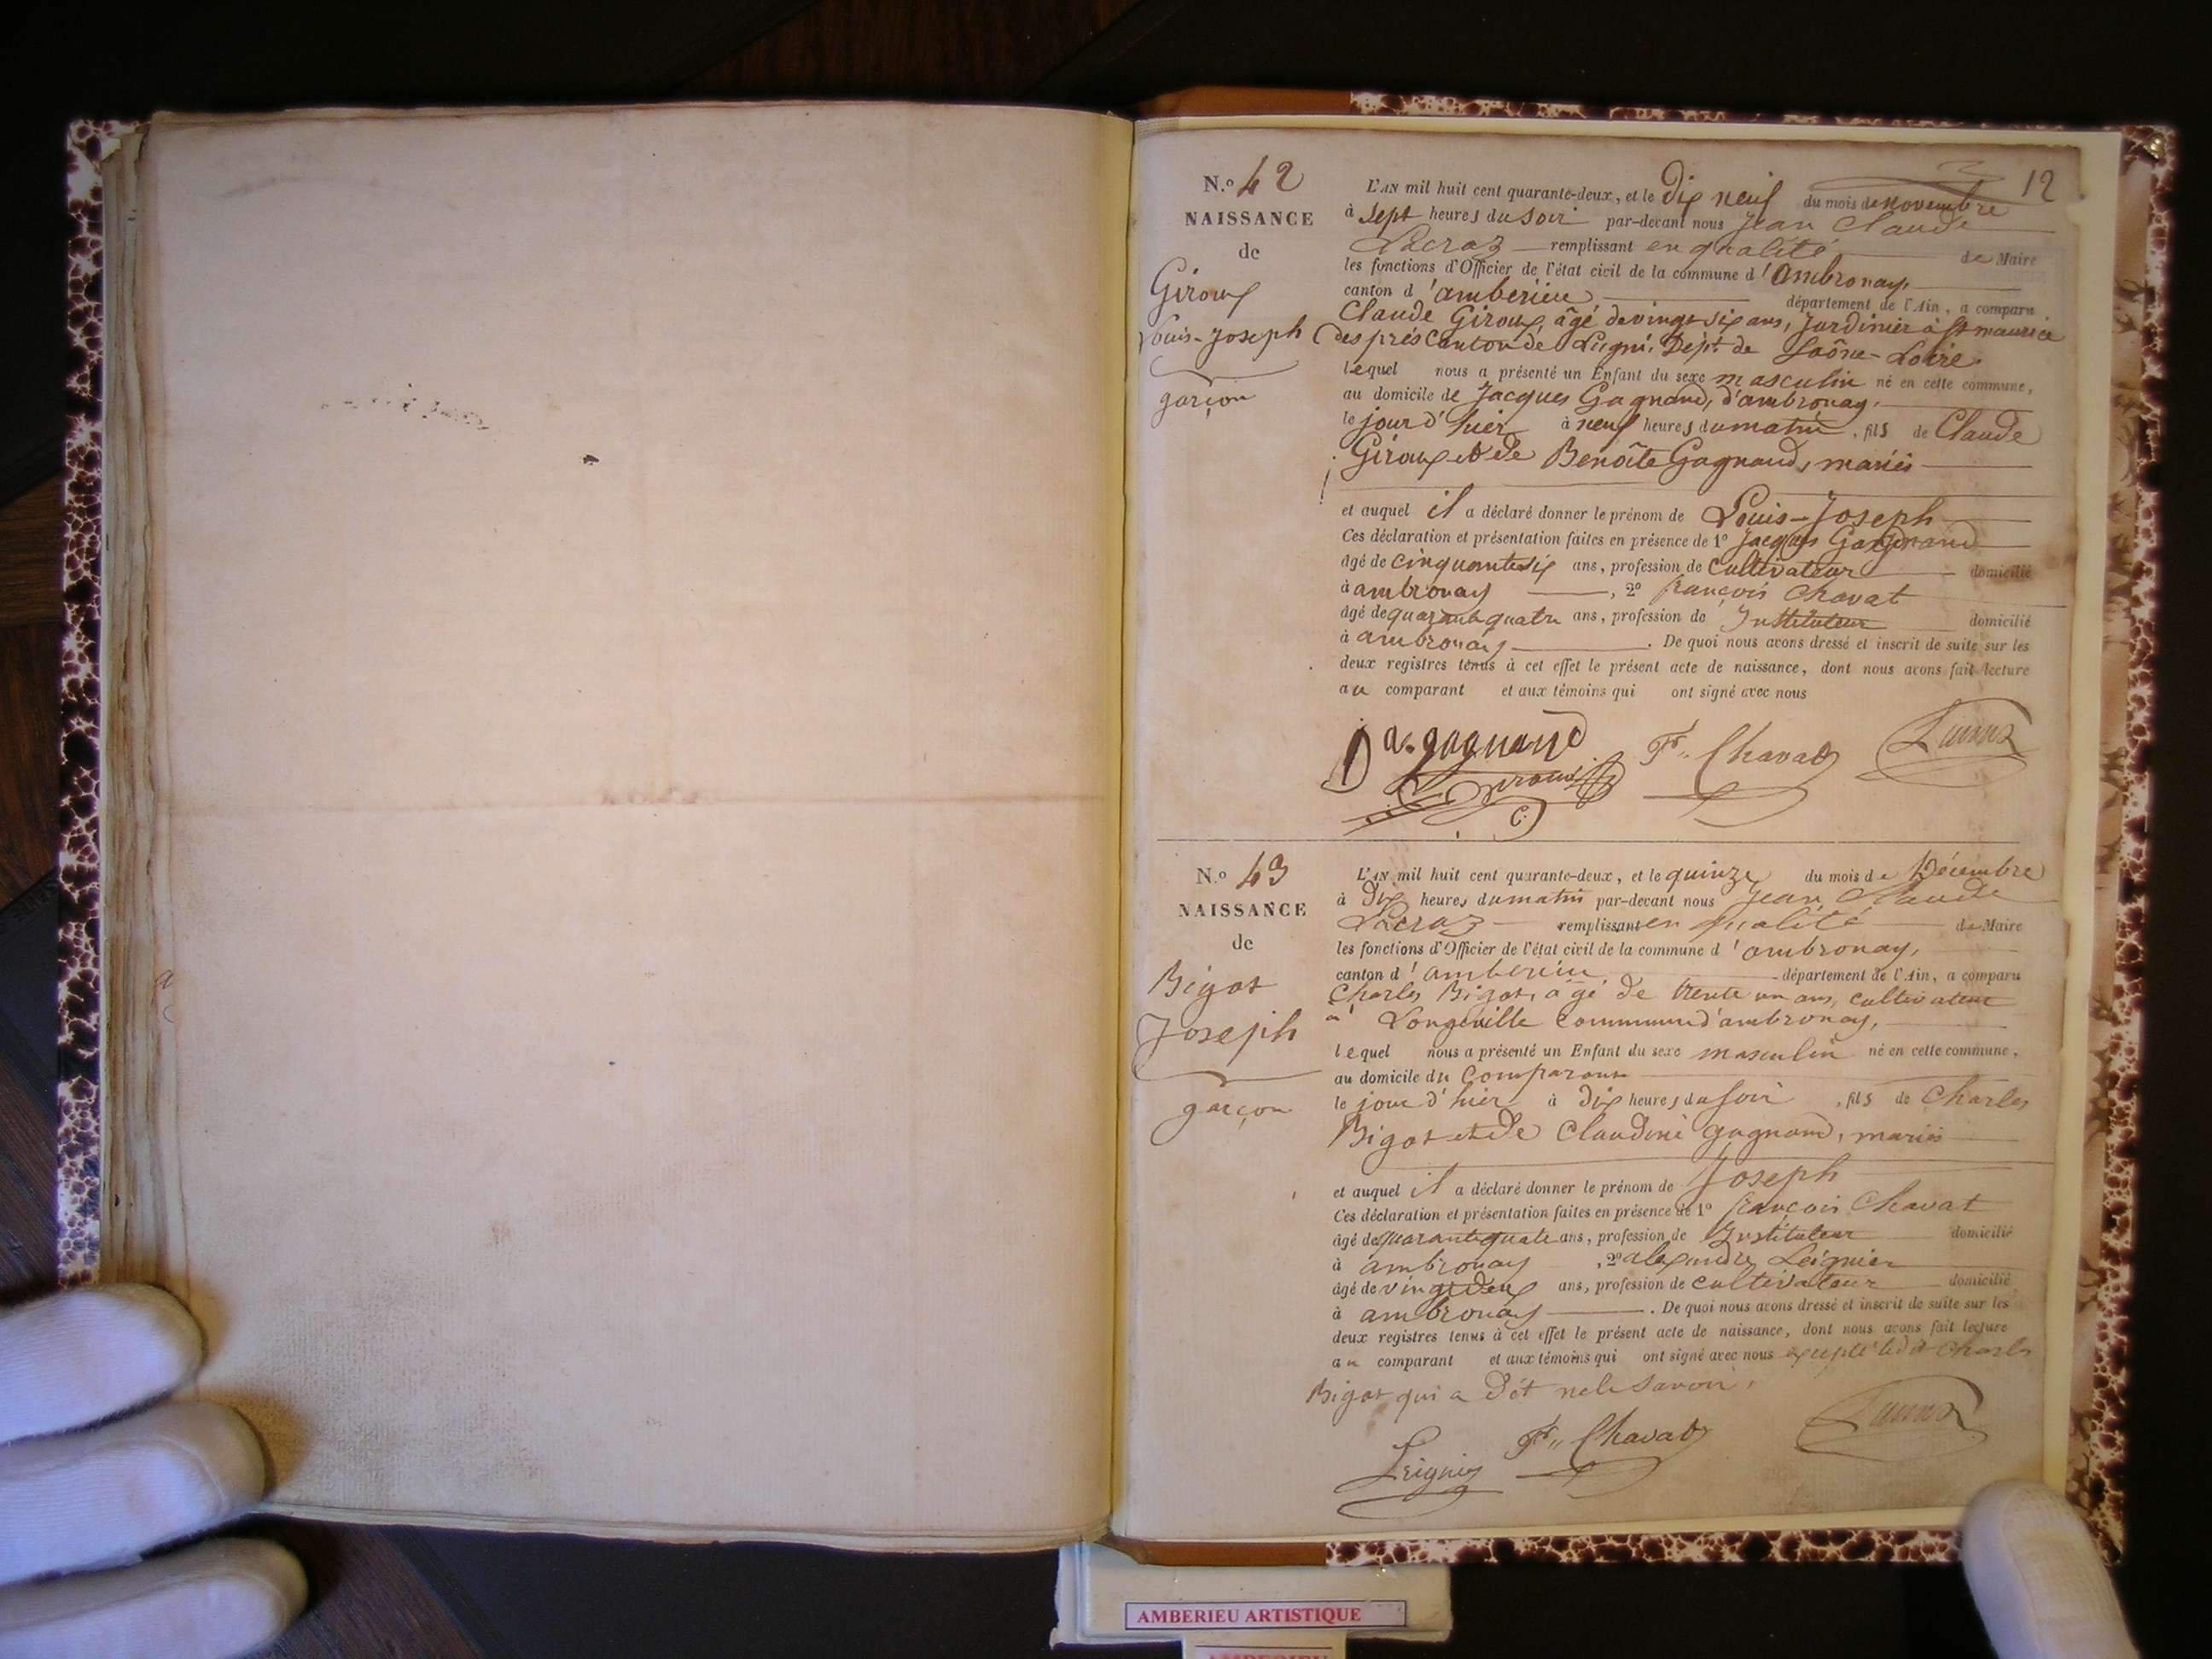 12
N.o 42
NAISSANCE
de
Giroux
Louis-Joseph
garçon
L'AN mil huit cent quarante-deux, et le Dix neuf du mois de novembre
à Sept heures du Soir par-devant nous Jean Claude
Lacraz remplissant en qualité de Maire
les fonctions d'Officier de l'état civil de la commune d'ambronay,
canton d'amberieu département de l'Ain, a comparu
Claude Giroux, âgé de vingt six ans, Jardinier à St maurice
des prés Canton de Lugni, Dépt. de Saône-Loire.
lequel nous a présenté un Enfant du sexe masculin né en cette commune,
au domicile de Jacques Gagnand, d'ambronay,
le jour d'hier à neuf heures du matin, fils de Claude
Giroux et de Benoîte Gagnand, mariés
et auquel il a déclaré donner le prénom de Louis-Joseph
Ces déclaration et présentation faites en présence de 1o Jacques Gagnand
âgé de cinquante six ans, profession de Cultivateur domicilié
à ambronay, 2o françois Chavat
âgé de quarante quatre ans, profession de Instituteur domicilié
à ambronay. De quoi nous avons dressé et inscrit de suite sur les
deux registres tenus à cet effet le présent acte de naissance, dont nous avons fait lecture
au comparant et aux témoins qui ont signé avec nous
gagnand Fs Chavat
Giroux
N.o 43
NAISSANCE
de
Bigot
Joseph
garçon
L'AN mil huit cent quarante-deux, et le quinze du mois de Décembre
à Dix heures du matin par-devant nous Jean Claude
Lacraz remplissant en qualité de Maire
les fonctions d'Officier de l'état civil de la commune d'ambronay,
canton d'amberieu département de l'Ain, a comparu
Charles Bigot, âgé de trente un ans, cultivateur
à Longeville Commune d'ambronay,
lequel nous a présenté un Enfant du sexe masculin né en cette commune,
au domicile du Comparant
le jour d'hier à dix heures du Soir, fils de Charles
Bigot et de Claudine gagnand, mariés
et auquel il a déclaré donner le prénom de Joseph
Ces déclaration et présentation faites en présence de 1o françois Chavat
âgé de quarante quatre ans, profession de Instituteur domicilié
à ambronay, 2o alexandre Leignier
âgé de vingt deux ans, profession de cultivateur domicilié
à ambronay. De quoi nous avons dressé et inscrit de suite sur les
deux registres tenus à cet effet le présent acte de naissance, dont nous avons fait lecture
au comparant et aux témoins qui ont signé avec nous excepté led. Charles
Bigot qui a dit ne le savoir.
Leignier Fs Chavat
AMBERIEU ARTISTIQUE
AMBERIEU